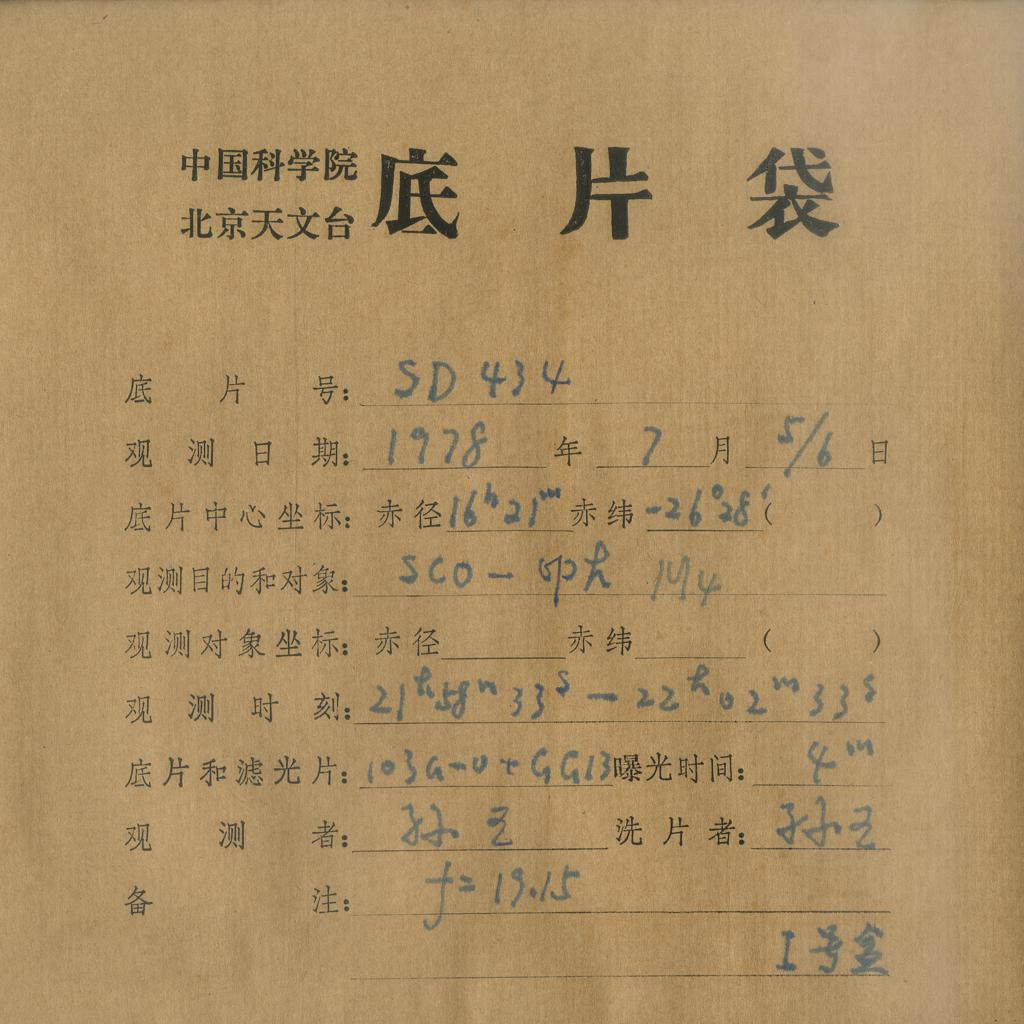 中国科学院
北京天文台
底片袋
底片号: SD 434
观测日期: 1978 年 7 月 5/6 日
底片中心坐标: 赤径 16ʰ21ᵐ 赤纬 -26°28′ ( )
观测目的和对象: SCO — oph M4
观测对象坐标: 赤径 赤纬 ( )
观测时刻: 21ʰ58ᵐ33ˢ — 22ʰ02ᵐ33ˢ
底片和滤光片: 103a-O + GG13 曝光时间: 4ᵐ
观测者: 孙 王 洗片者: 孙 王
备注: f=19.15
I号盒